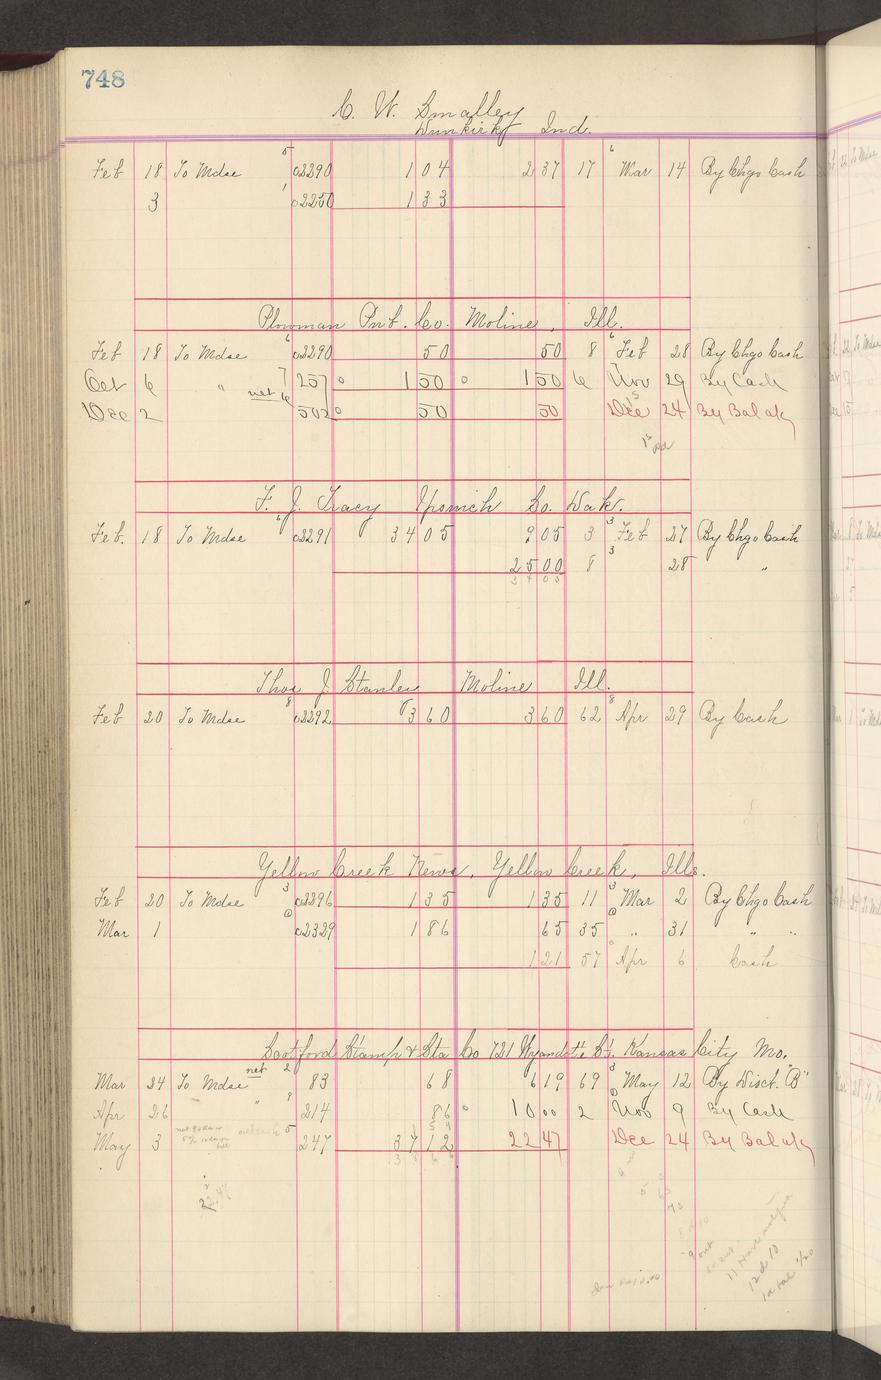 748
C. W. Smalley
Dunkirk Ind.
Feb 18 To Mdse 5 02290 1 04 2 37 17 6 Mar 14 By Chgo Cash
3 1 02250 1 33
Plowman Pub. Co. Moline, Ill.
Feb 18 To Mdse 6 02290 50 50 8 6 Feb 28 By Chgo Cash
Oct 6 " 7 257 1 50 1 50 6 7 Nov 29 By Cash
Dec 2 net 6 502 50 50 Dec 24 By Bal
F. J. Tracy Ipswich So. Dak.
Feb. 18 To Mdse 02291 34 05 9 05 3 3 Feb 27 By Chgo Cash
25 00 8 3 28 "
34 05
Thos J. Stanley Moline Ill.
Feb 20 To Mdse 8 02292 3 60 3 60 62 8 Apr 29 By Cash
Yellow Creek News, Yellow Creek, Ills.
Feb 20 To Mdse 3 02296 1 35 1 35 11 3 Mar 2 By Chgo Cash
Mar 1 02329 1 86 65 35 " 31 " "
1 21 57 Apr 6 Cash
Scotford Stamp & Sta Co 721 Wyandotte St. Kansas City Mo.
Mar 24 To Mdse net 2 83 68 6 19 69 3 May 12 By Disct. "B"
Apr 26 " 9 214 86 10 00 2 Nov 9 By Cash
May 3 5 247 37 12 22 47 Dec 24 By Bal
22.47